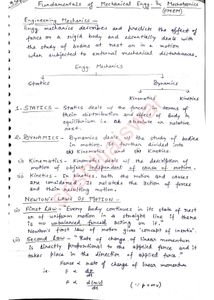 Fundamentals of Mechanical Engg. & Mechatronics
(FMEM)
Engineering Mechanics -
Engg mechanics describes and predicts the effect
of force on a rigid body and essentially deals with
the study of bodies at rest on in a motion
when subjected to external mechanical disturbances.
Engg. Mechanics
Statics
Dynamics
Kinematics
Kinetics
1. STATICS - Statics deals with the forces in terms
of their distribution and effect of body in
equilibrium i.e. absolute or relative
rest.
2. DYNAMICS - Dynamics deals with the study of bodies
in motion. It further divided into
(a) Kinematics and (b) Kinetics.
(i) Kinematics - deals with the description of
motion of object independent of cause of motion.
(ii) Kinetics - In kinetics, both the motion and causes
are considered. It relates the action of forces
and their resulting
NEWTON'S LAWS OF MOTION -
(i) First Law - "Every body continues in its state of rest
or of uniform motion in a straight line if there
is no unbalanced force acting on it."
Newton's first law of motion gives 'concept of inertia'.
(ii) Second Law - "Rate of change of linear momentum
is directly proportional to the applied force and it
takes place in the direction of applied force."
Force ∝ rate of change of linear momentum
i.e. F ∝ dp/dt
F ∝ d(mv)/dt (∵ p=mv)